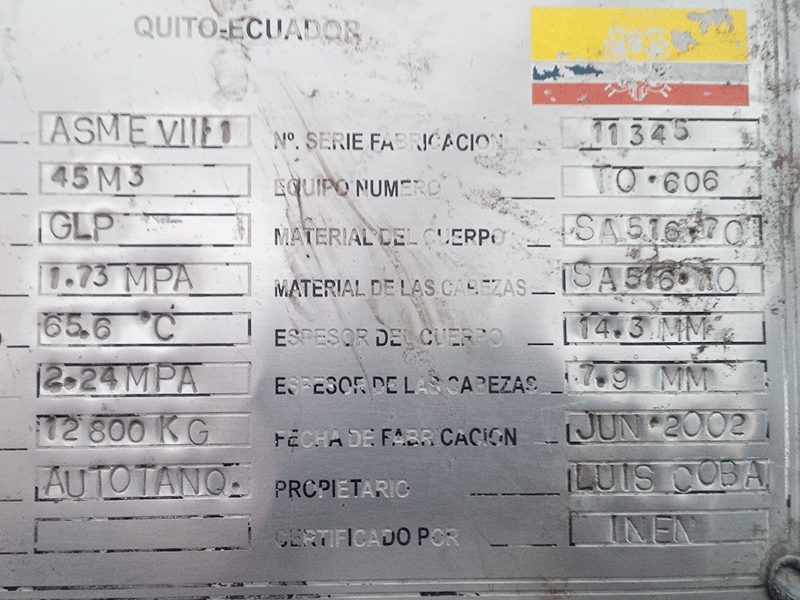 QUITO-ECUADOR
ASME VIII-1 Nº. SERIE FABRICACION 11345
45 M3 EQUIPO NUMERO TQ-606
GLP MATERIAL DEL CUERPO SA516-70
1.73 MPA MATERIAL DE LAS CABEZAS SA516-70
65.6 °C ESPESOR DEL CUERPO 14.3 MM
2.24 MPA ESPESOR DE LAS CABEZAS 7.9 MM
12800 KG FECHA DE FABRICACION JUN-2002
AUTOTANQ. PROPIETARIO LUIS COBA
CERTIFICADO POR INEN